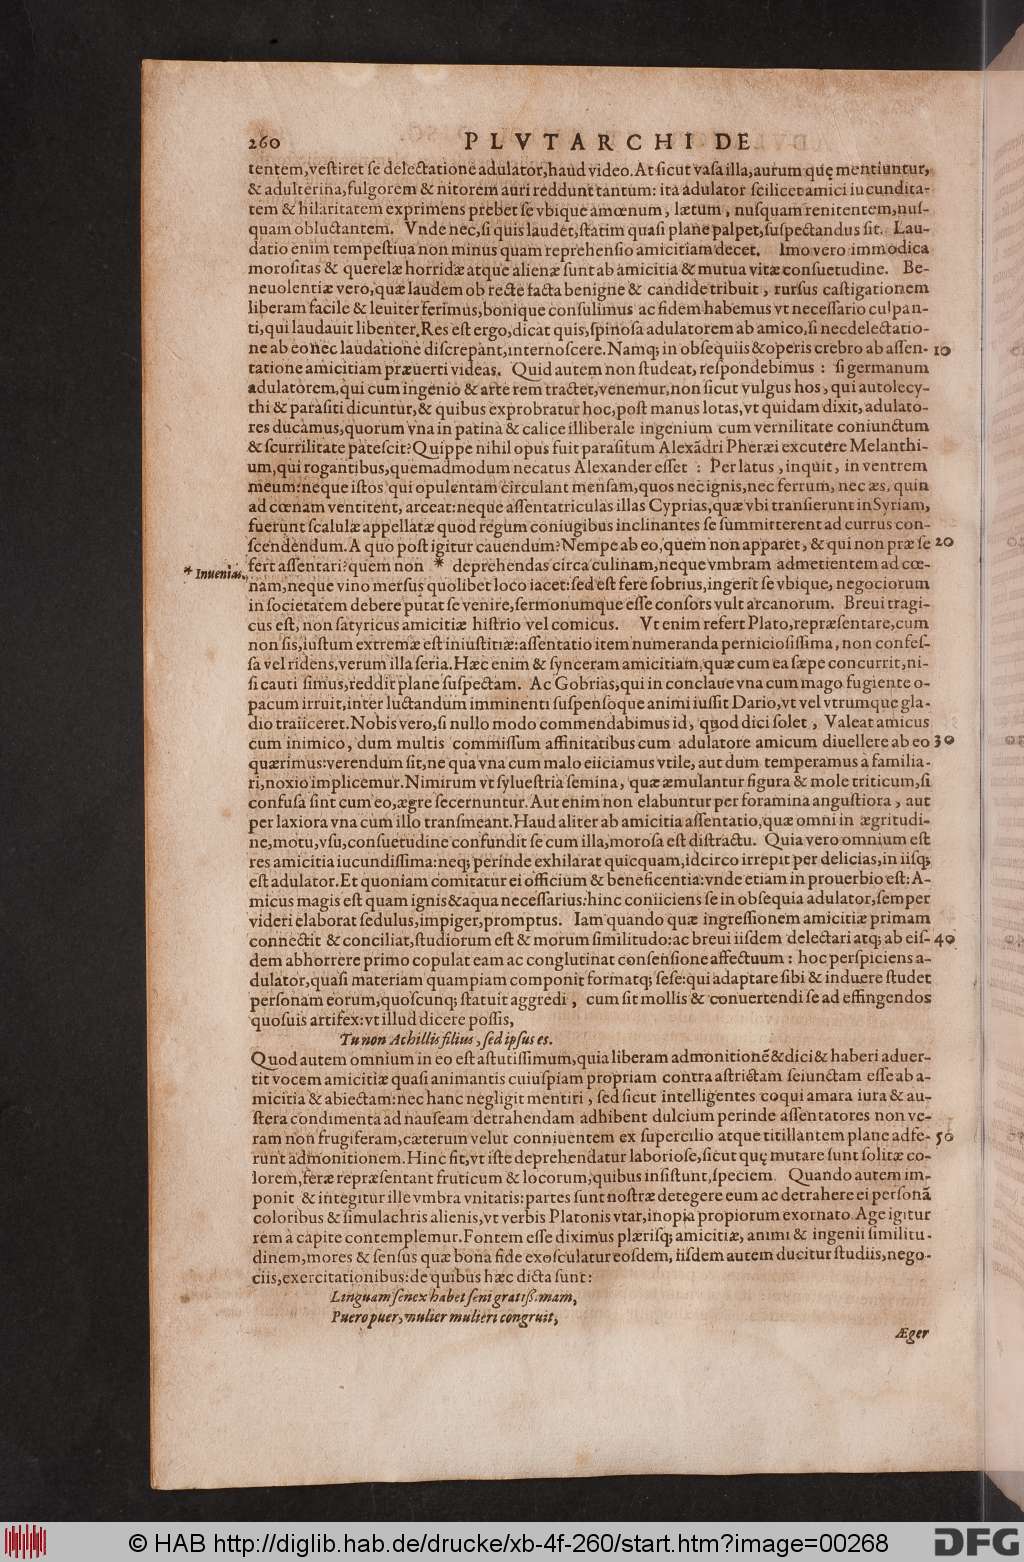 260 PLVTARCHI DE
tentem, vestiret se delectatione adulator, haud video. At sicut vasa illa, aurum quę mentiuntur,
& adulterina, fulgorem & nitorem auri reddunt tantum: ita adulator scilicet amici iucundita-
tem & hilaritatem exprimens prębet se vbique amœnum, lætum, nusquam renitentem, nus-
quam obluctantem. Vnde nec, si quis laudet, statim quasi plane palpet, suspectandus sit. Lau-
datio enim tempestiua non minus quam reprehensio amicitiam decet. Imo vero immodica
morositas & querelæ horridæ atque alienæ sunt ab amicitia & mutua vitæ consuetudine. Be-
neuolentiæ vero, quæ laudem ob recte facta benigne & candide tribuit, rursus castigationem
liberam facile & leuiter ferimus, bonique consulimus ac fidem habemus vt necessario culpan-
ti, qui laudauit libenter. Res est ergo, dicat quis, spinosa adulatorem ab amico, si nec delectatio-
ne ab eo nec laudatione discrepant, internoscere. Namq; in obsequiis & operis crebro ab assen- 10
tatione amicitiam præuerti videas. Quid autem non studeat, respondebimus: si germanum
adulatorem, qui cum ingenio & arte rem tractet, venemur, non sicut vulgus hos, qui autolecy-
thi & parasiti dicuntur, & quibus exprobratur hoc, post manus lotas, vt quidam dixit, adulato-
res ducamus, quorum vna in patina & calice illiberale ingenium cum vernilitate coniunctum
& scurrilitate patescit? Quippe nihil opus fuit parasitum Alexādri Pheræi excutere Melanthi-
um, qui rogantibus, quemadmodum necatus Alexander esset: Per latus, inquit, in ventrem
meum: neque istos qui opulentam circulant mensam, quos nec ignis, nec ferrum, nec æs, quin
ad cœnam ventitent, arceat: neque assentatriculas illas Cyprias, quæ vbi transierunt in Syriam,
fuerunt scalulæ appellatæ quod regum coniugibus inclinantes se summitterent ad currus con-
scendendum. A quo post igitur cauendum? Nempe ab eo, quem non apparet, & qui non præ se 20
fert assentari? quem non * deprehendas circa culinam, neque vmbram admetientem ad cœ-
* Inuenias.
nam, neque vino mersus quolibet loco iacet: sed est fere sobrius, ingerit se vbique, negociorum
in societatem debere putat se venire, sermonumque esse consors vult arcanorum. Breui tragi-
cus est, non satyricus amicitiæ histrio vel comicus. Vt enim refert Plato, repræsentare, cum
non sis, iustum extremæ est iniustitiæ: assentatio item numeranda perniciosissima, non confes-
sa vel ridens, verum illa seria. Hæc enim & synceram amicitiam, quæ cum ea sæpe concurrit, ni-
si cauti simus, reddit plane suspectam. Ac Gobrias, qui in conclaue vna cum mago fugiente o-
pacum irruit, inter luctandum imminenti suspensoque animi iussit Dario, vt vel vtrumque gla-
dio traiiceret. Nobis vero, si nullo modo commendabimus id, quod dici solet, Valeat amicus
cum inimico, dum multis commissum affinitatibus cum adulatore amicum diuellere ab eo 30
quærimus: verendum sit, ne qua vna cum malo eiiciamus vtile, aut dum temperamus à familia-
ri, noxio implicemur. Nimirum vt syluestria semina, quæ æmulantur figura & mole triticum, si
confusa sint cum eo, ægre secernuntur. Aut enim non elabuntur per foramina angustiora, aut
per laxiora vna cum illo transmeant. Haud aliter ab amicitia assentatio, quæ omni in ægritudi-
ne, motu, vsu, consuetudine confundit se cum illa, morosa est distractu. Quia vero omnium est
res amicitia iucundissima: neq; perinde exhilarat quicquam, idcirco irrepit per delicias, in iisq;
est adulator. Et quoniam comitatur ei officium & beneficentia: vnde etiam in prouerbio est: A-
micus magis est quam ignis & aqua necessarius: hinc coniiciens se in obsequia adulator, semper
videri elaborat sedulus, impiger, promptus. Iam quando quæ ingressionem amicitiæ primam
connectit & conciliat, studiorum est & morum similitudo: ac breui iisdem delectari atq; ab eis- 40
dem abhorrere primo copulat eam ac conglutinat consensione affectuum: hoc perspiciens a-
dulator, quasi materiam quampiam componit formatq; sese: qui adaptare sibi & induere studet
personam eorum, quoscunq; statuit aggredi, cum sit mollis & conuertendi se ad effingendos
quosuis artifex: vt illud dicere possis,
Tu non Achillis filius, sed ipsus es.
Quod autem omnium in eo est astutissimum, quia liberam admonitionē & dici & haberi aduer-
tit vocem amicitiæ quasi animantis cuiuspiam propriam contra astrictam seiunctam esse ab a-
micitia & abiectam: nec hanc negligit mentiri, sed sicut intelligentes coqui amara iura & au-
stera condimenta ad nauseam detrahendam adhibent dulcium perinde assentatores non ve-
ram non frugiferam, cæterum velut conniuentem ex supercilio atque titillantem plane adfe- 50
runt admonitionem. Hinc fit, vt iste deprehendatur laboriose, sicut quę mutare sunt solitæ co-
lorem, feræ repræsentant fruticum & locorum, quibus insistunt, speciem. Quando autem im-
ponit & integitur ille vmbra vnitatis: partes sunt nostræ detegere eum ac detrahere ei personā
coloribus & simulachris alienis, vt verbis Platonis vtar, inopia propiorum exornato. Age igitur
rem à capite contemplemur. Fontem esse diximus plærisq; amicitiæ, animi & ingenii similitu-
dinem, mores & sensus quæ bona fide exosculatur eosdem, iisdem autem ducitur studiis, nego-
ciis, exercitationibus: de quibus hæc dicta sunt:
Linguam senex habet seni gratißimam,
Puero puer, mulier mulieri congruit,
Æger
© HAB http://diglib.hab.de/drucke/xb-4f-260/start.htm?image=00268
DFG